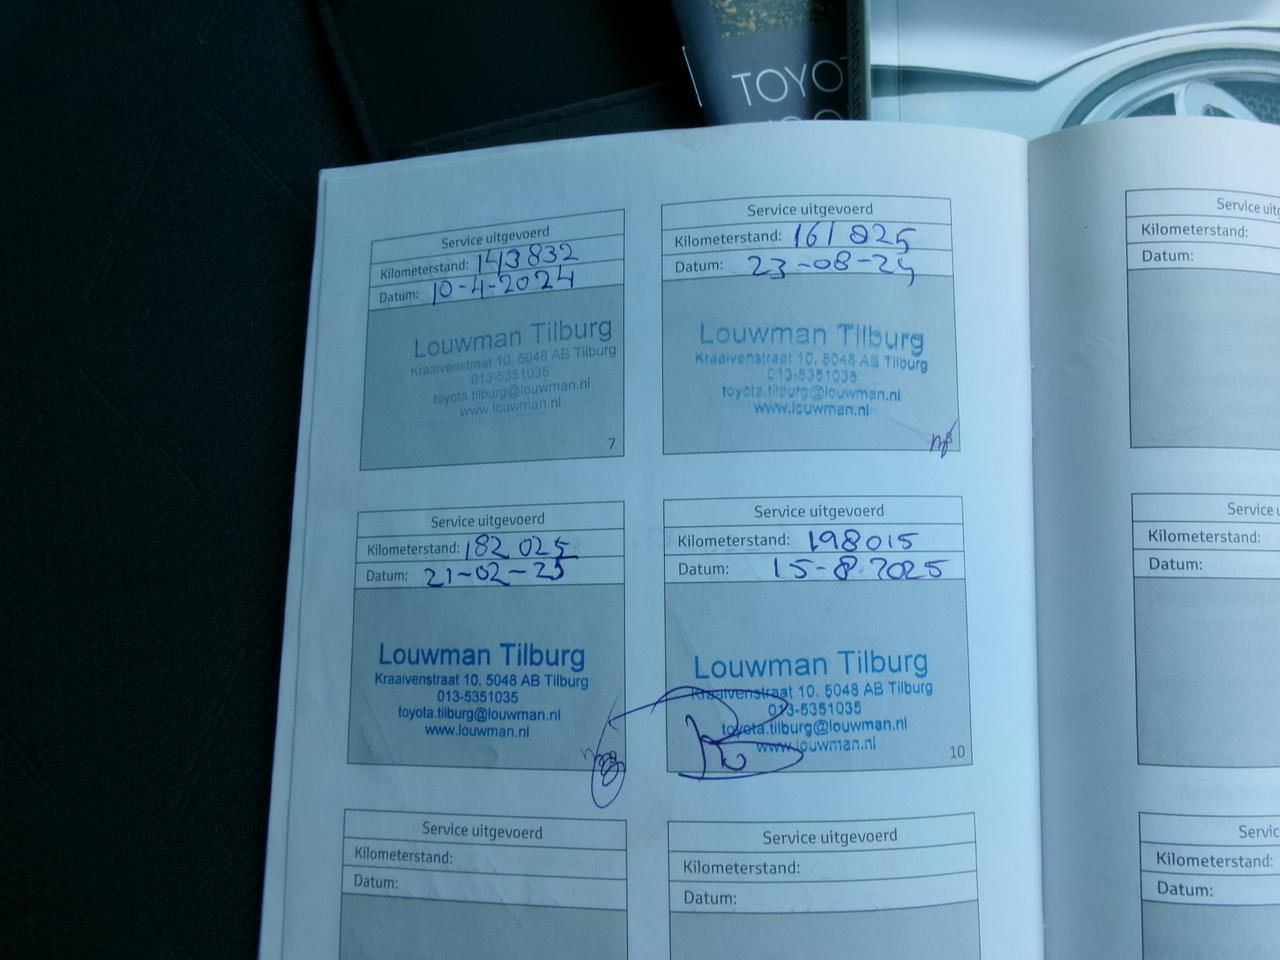 TOYO
Service uitgevoerd
Kilometerstand: 143832
Datum: 10-4-2024
Louwman Tilburg
Kraaivenstraat 10, 5048 AB Tilburg
013-5351035
toyota.tilburg@louwman.nl
www.louwman.nl
7
Service uitgevoerd
Kilometerstand: 161 825
Datum: 23-08-24
Louwman Tilburg
Kraaivenstraat 10, 5048 AB Tilburg
013-5351035
toyota.tilburg@louwman.nl
www.louwman.nl
Service uitg
Kilometerstand:
Datum:
Service uitgevoerd
Kilometerstand: 182 025
Datum: 21-02-25
Louwman Tilburg
Kraaivenstraat 10, 5048 AB Tilburg
013-5351035
toyota.tilburg@louwman.nl
www.louwman.nl
Service uitgevoerd
Kilometerstand: 198015
Datum: 15-8-2025
Louwman Tilburg
Kraaivenstraat 10, 5048 AB Tilburg
013-5351035
toyota.tilburg@louwman.nl
www.louwman.nl
10
Service u
Kilometerstand:
Datum:
Service uitgevoerd
Kilometerstand:
Datum:
Service uitgevoerd
Kilometerstand:
Datum:
Servic
Kilometerstand:
Datum: